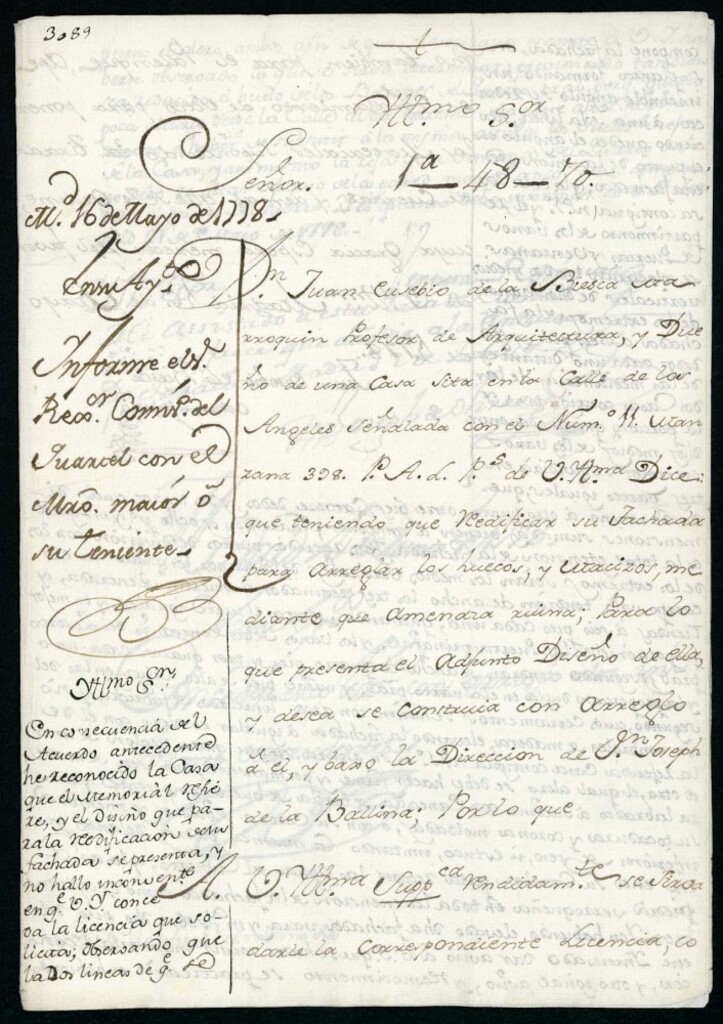 3089
Yllmo S.or
Señor.
1a—48—70.
M.d 16 de Mayo de 1778.
En su Ay.to
Informe el S.r
Rex.or Comis.o del
Quartel con el
Mro. maior ó
su teniente
D.n Juan Eusebio de la Viesca
rroquin Profesor de Arquitectura, y Due
ño de una Casa sita en la Calle de los
Angeles señalada con el Num.o 11. Man
zana 398. P. A. L. P.s de V. Yllma Dice:
que teniendo que redificar su fachada
para arreglar los huecos, y Macizos, me
diante que amenaza ruina; Para lo
que presenta el adjunto Diseño de ella,
y desea se construia con arreglo
á el, y baxo la Direccion de D.n Joseph
de la Ballina; Por lo que
A. V. Yllma Supp.ca rendidam.te se sirva
darle la correspondiente licencia, co
Yllmo S.or
En consecuencia del
Acuerdo antecedente
he reconocido la Casa
que el Memorial refie
re, y el diseño que pa-
ra la redificacion de su
fachada se presenta, y
no hallo inconveniente
en q.e V. Y. conce
da la licencia que so-
licita; observando que
las dos lineas de q.e se